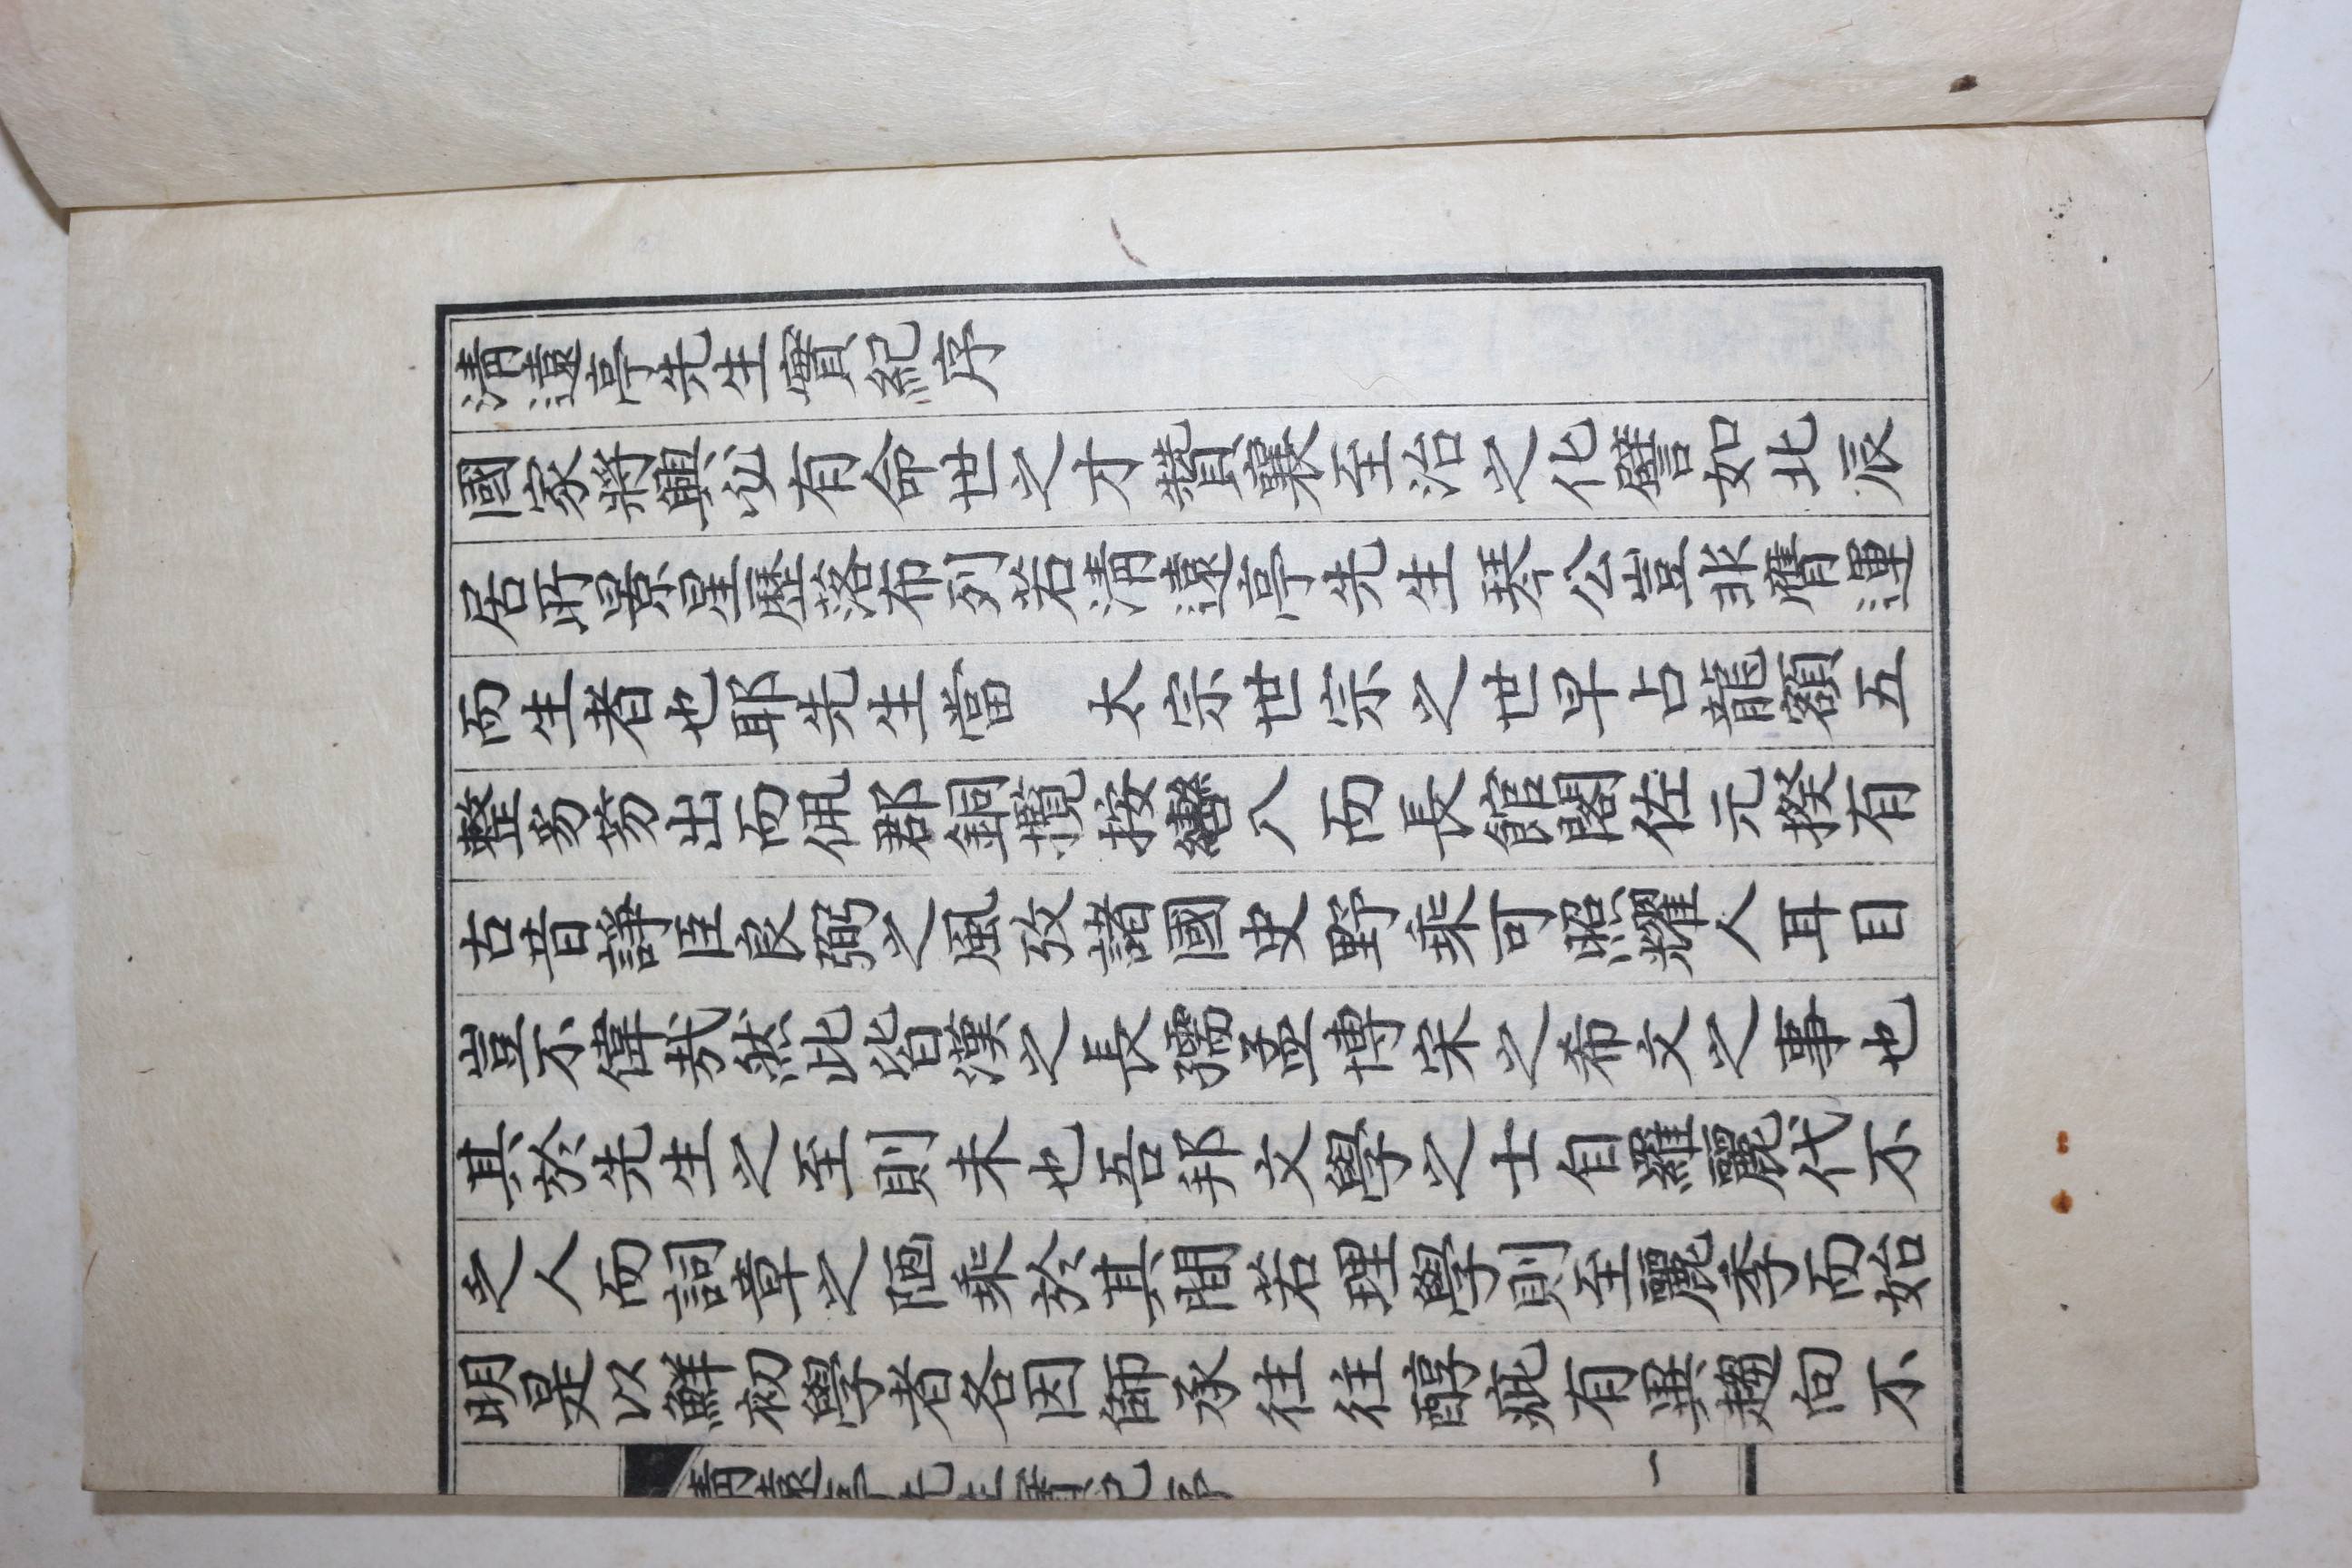 清遠亭先生實紀序
國家將興必有命世之才贊襄至治之化譬如北辰
居所景星歷落布列若清遠亭先生琴公豈非膺運
而生者也耶先生當 太宗世宗之世早占龍頷五
整豸芴出而佩郡銅攬按轡入而長館閣佐元揆有
古昔諍臣良弼之風發諸國史野乘可照耀人耳目
豈不偉哉然此皆漢之長孺孟博宋之希文之事也
其於先生之至則未也吾邦文學之士自羅麗代不
乏人而詞章之陋乘於其間若理學則至麗季而始
明是以鮮初學者各因師承往往醇疵有異趨向不
清遠亭先生實紀序 一